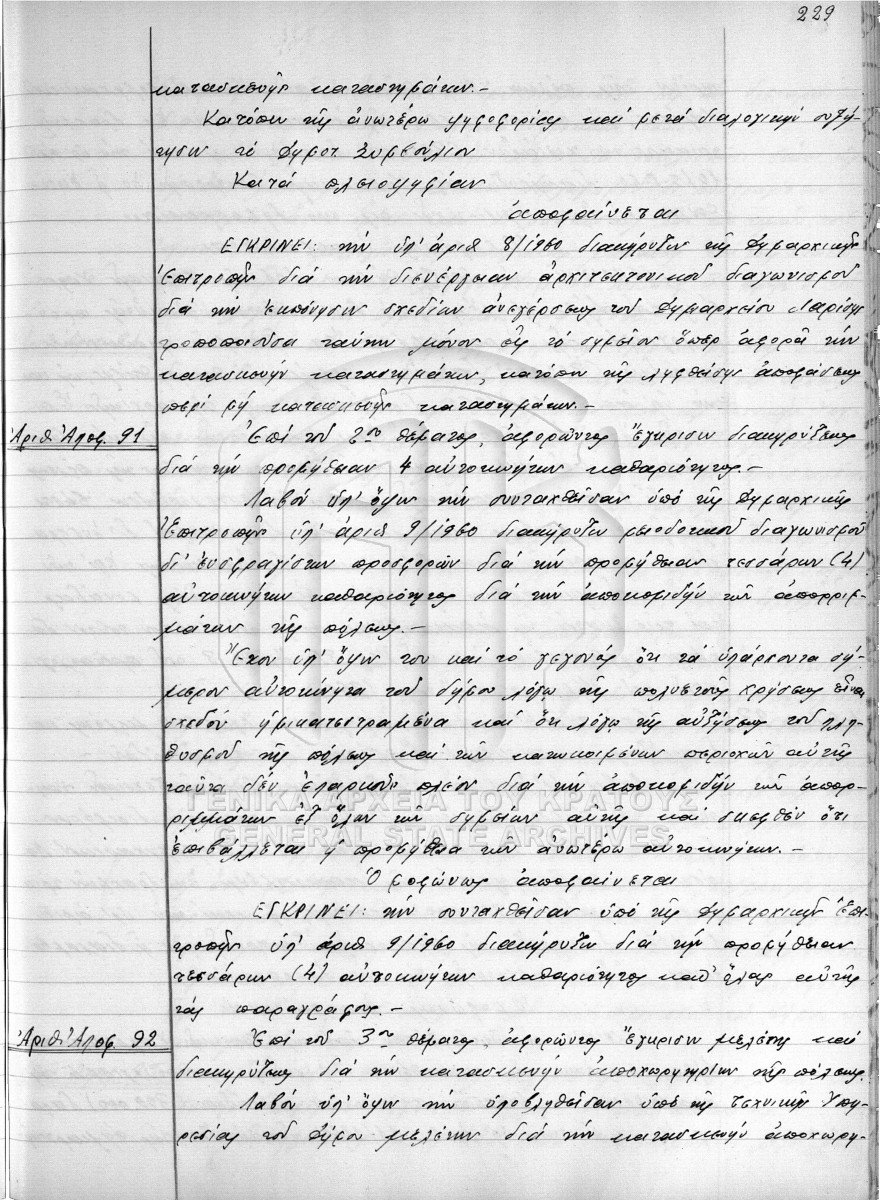 229
κατασκευῆς καταστημάτων.—
Κατόπιν τῆς ἀνωτέρω ψηφοφορίας καί μετά διαλογικήν συζή-
τησιν τό Δημοτ Συμβούλιον
Κατά πλειοψηφίαν
ἀποφαίνεται
ΕΓΚΡΙΝΕΙ: τήν ὑπ' ἀριθ 8/1960 διακήρυξιν τῆς Δημαρχιακῆς
Ἐπιτροπῆς διά τήν διενέργειαν ἀρχιτεκτονικοῦ διαγωνισμοῦ
διά τήν ἐκπόνησιν σχεδίων ἀνεγέρσεως τοῦ Δημαρχείου Λαρίσης
τροποποιοῦσα ταύτην μόνον εἰς τό σημεῖον ὅπερ ἀφορᾶ τήν
κατασκευήν καταστημάτων, κατόπιν τῆς ληφθείσης ἀποφάσεως
περί μή κατασκευῆς καταστημάτων.—
Ἀριθ Ἀποφ. 91
Ἐπί τοῦ 2ου θέματος, ἀφορῶντος ἔγκρισιν διακηρύξεως
διά τήν προμήθειαν 4 αὐτοκινήτων καθαριότητος.—
Λαβόν ὑπ' ὄψιν τήν συνταχθεῖσαν ὑπό τῆς Δημαρχιακῆς
Ἐπιτροπῆς ὑπ' ἀριθ 9/1960 διακήρυξιν μειοδοτικοῦ διαγωνισμοῦ
δι' ἐνσφραγίστων προσφορῶν διά τήν προμήθειαν τεσσάρων (4)
αὐτοκινήτων καθαριότητος διά τήν ἀποκομιδήν τῶν ἀπορριμ-
μάτων τῆς πόλεως.—
Ἔχον ὑπ' ὄψιν του καί τό γεγονός ὅτι τά ὑπάρχοντα σή-
μερον αὐτοκίνητα τοῦ δήμου λόγῳ τῆς πολυετοῦς χρήσεως εἶναι
σχεδόν ἡμικατεστραμένα καί ὅτι λόγῳ τῆς αὐξήσεως τοῦ πλη-
θυσμοῦ τῆς πόλεως καί τῶν κατοικημένων περιοχῶν αὐτῆς
ταῦτα δέν ἐπαρκοῦν πλέον διά τήν ἀποκομιδήν τῶν ἀπορ-
ριμμάτων ἐξ ὅλων τῶν σημείων αὐτῆς καί σκεφθέν ὅτι
ΓΕΝΙΚΑ ΑΡΧΕΙΑ ΤΟΥ ΚΡΑΤΟΥΣ
GENERAL STATE ARCHIVES
ἐπιβάλλεται ἡ προμήθεια τῶν ἀνωτέρω αὐτοκινήτων.—
Ὁμοφώνως ἀποφαίνεται
ΕΓΚΡΙΝΕΙ: τήν συνταχθεῖσαν ὑπό τῆς Δημαρχιακῆς Ἐπι-
τροπῆς ὑπ' ἀριθ 9/1960 διακήρυξιν διά τήν προμήθειαν
τεσσάρων (4) αὐτοκινήτων καθαριότητος καθ' ὅλας αὐτῆς
τάς παραγράφους.—
Ἀριθ Ἀποφ. 92
Ἐπί τοῦ 3ου θέματος, ἀφορῶντος ἔγκρισιν μελέτης καί
διακηρύξεως διά τήν κατασκευήν ἀποχωρητηρίων τῆς πόλεως.
Λαβόν ὑπ' ὄψιν τήν ὑποβληθεῖσαν ὑπό τῆς τεχνικῆς Ὑπη-
ρεσίας τοῦ Δήμου μελέτην διά τήν κατασκευήν ἀποχωρη-